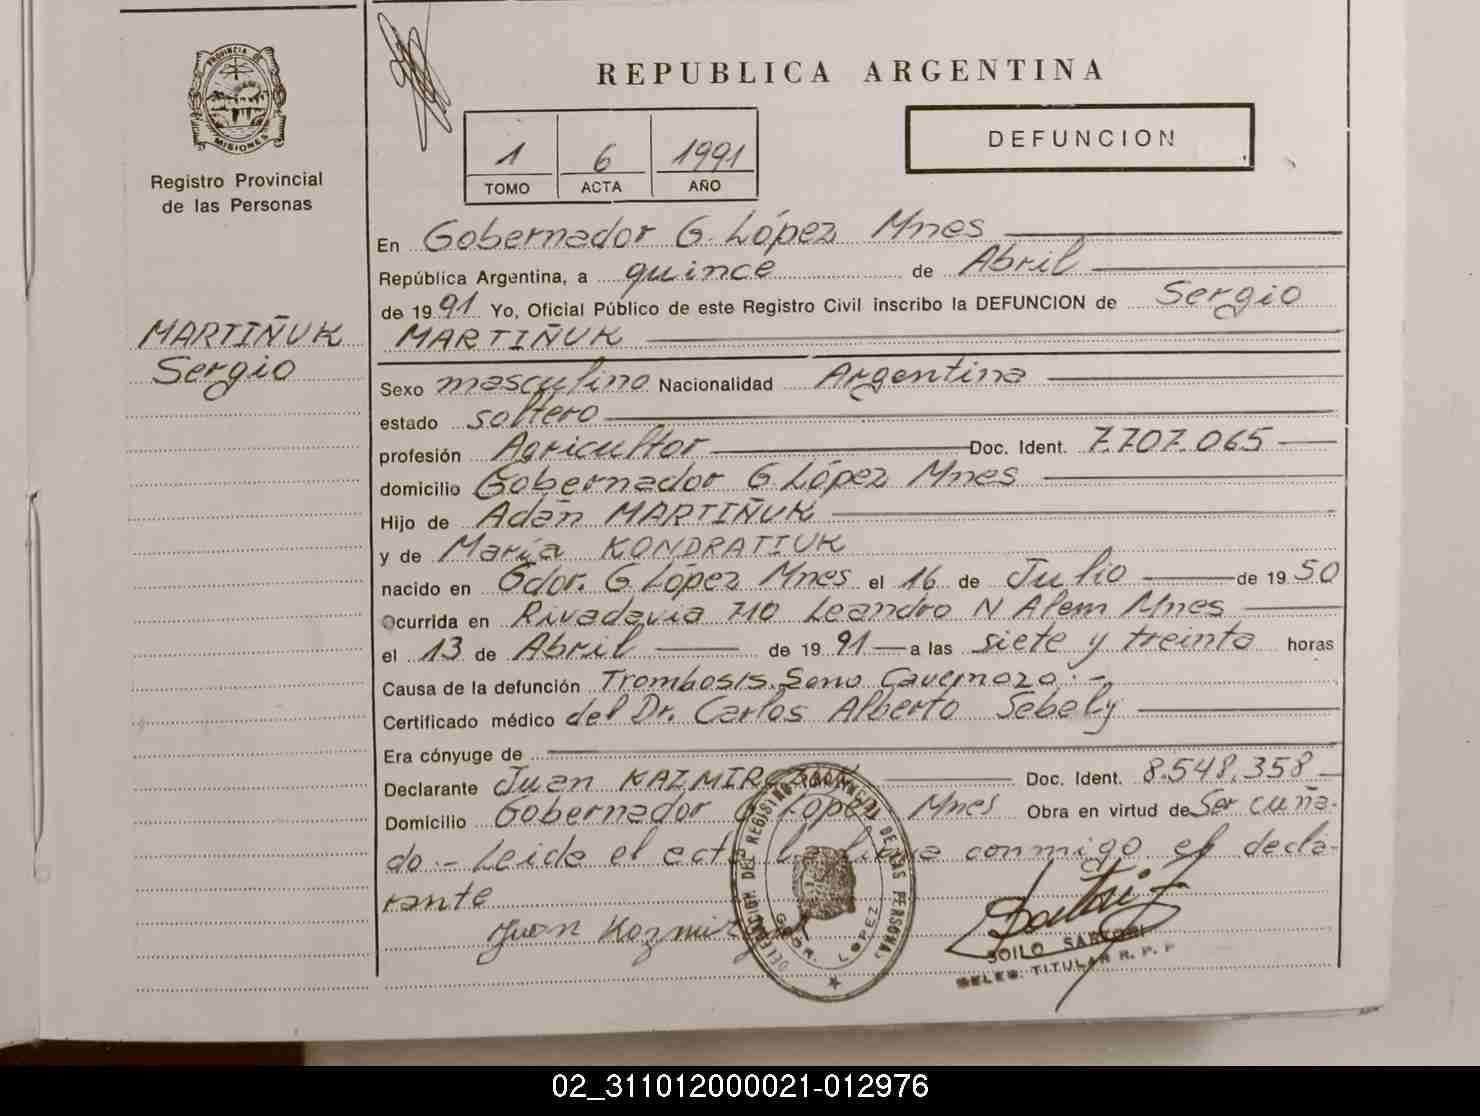 PROVINCIA DE
MISIONES
Registro Provincial
de las Personas
MARTIÑUK
Sergio
REPUBLICA ARGENTINA
1 6 1991
TOMO ACTA AÑO
DEFUNCION
En Gobernador G. López Mnes
República Argentina, a quince de Abril
de 1991 Yo, Oficial Público de este Registro Civil inscribo la DEFUNCION de Sergio
MARTIÑUK
Sexo masculino Nacionalidad Argentina
estado soltero
profesión Agricultor Doc. Ident. 7.707.065
domicilio Gobernador G. López Mnes
Hijo de Adán MARTIÑUK
y de María KONDRATIUK
nacido en Gdor. G. López Mnes el 16 de Julio de 1950
Ocurrida en Rivadavia 710 Leandro N Alem Mnes
el 13 de Abril de 1991 a las siete y treinta horas
Causa de la defunción Trombosis. Seno Cavernozo.-
Certificado médico del Dr. Carlos Alberto Sebely
Era cónyuge de
Declarante Juan Doc. Ident. 8.548.358
Domicilio Gobernador G López Mnes Obra en virtud de Ser cuña-
do.- Leida el acta la firma conmigo el decla-
rante
Juan
DELEGACION DEL REGISTRO PROVINCIAL DE LAS PERSONAS
GDOR. LOPEZ
SOILO SARTORI
DELEG. TITULAR R. P. P
02_311012000021-012976